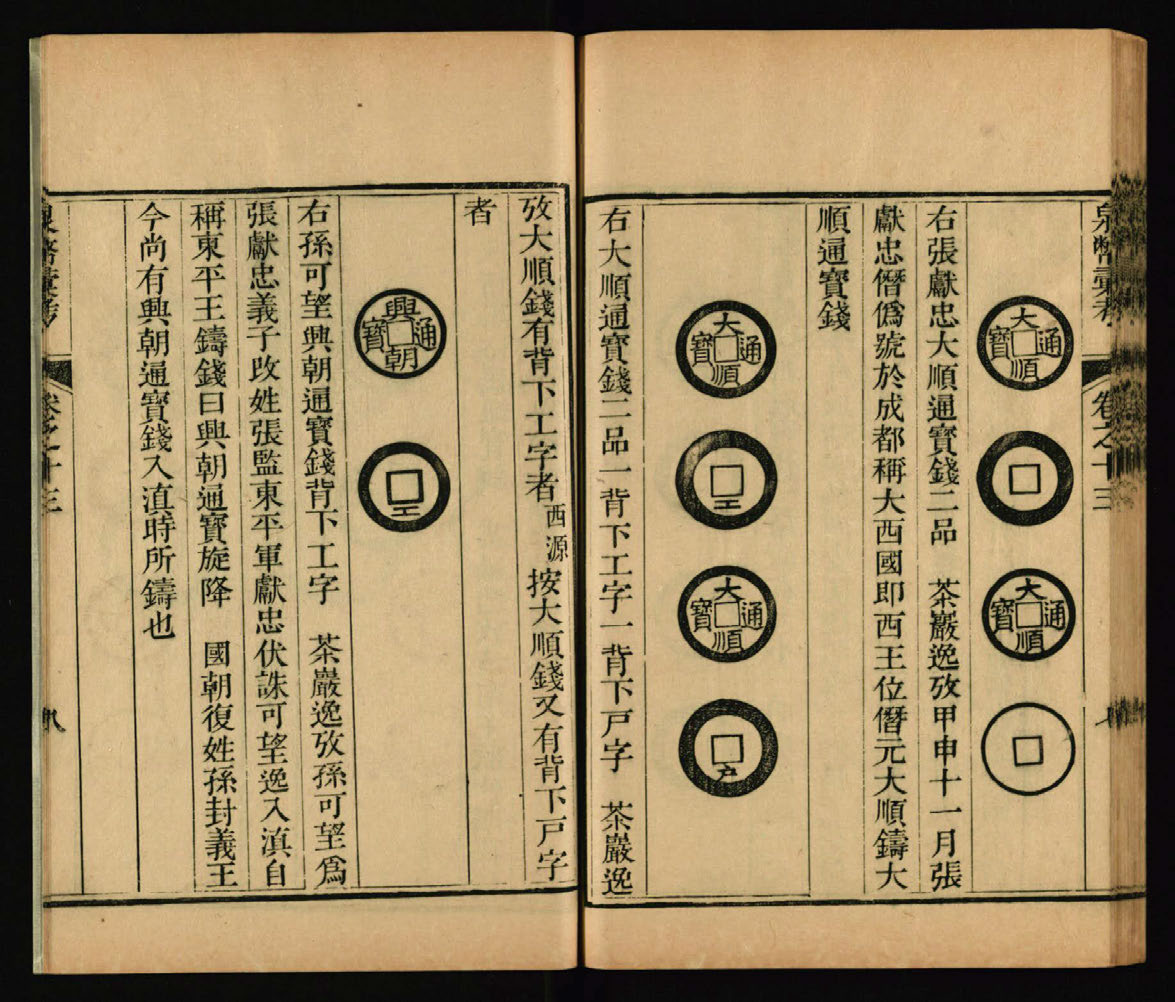 泉幣彙考
卷之十三
大順通寶
大順通寶
右張獻忠大順通寶錢二品　茶巖逸攷甲申十一月張
獻忠僭僞號於成都稱大西國即西王位僭元大順鑄大
順通寶錢
大順通寶
工
大順通寶
戸
右大順通寶錢二品一背下工字一背下戸字　茶巖逸
攷大順錢有背下工字者西源按大順錢又有背下戸字
者
興朝通寶
工
右孫可望興朝通寶錢背下工字　茶巖逸攷孫可望爲
張獻忠義子改姓張監東平軍獻忠伏誅可望逸入滇自
稱東平王鑄錢曰興朝通寶旋降　國朝復姓孫封義王
今尚有興朝通寶錢入滇時所鑄也
泉幣彙攷
卷之十三
八